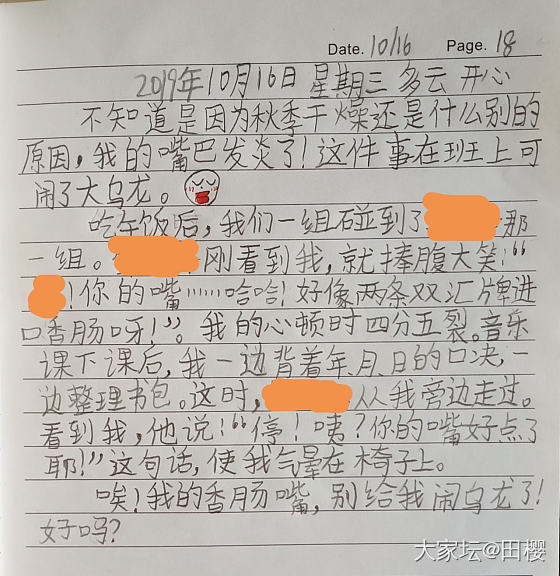 Date. 10/16 Page. 18
2019年10月16日 星期三 多云 开心
不知道是因为秋季干燥还是什么别的
原因,我的嘴巴发炎了!这件事在班上可
闹了大乌龙。
吃午饭后,我们一组碰到了 那
一组。 刚看到我,就捧腹大笑!“
!你的嘴……哈哈!好像两条双汇牌进
口香肠呀!”。我的心顿时四分五裂。音乐
课下课后,我一边背着年月日的口决,一
边整理书包。这时, 从我旁边走过。
看到我,他说!“停!咦?你的嘴好点了
耶!”这句话,使我气晕在椅子上。
唉!我的香肠嘴,别给我闹乌龙了!
好吗?
大家坛@田樱